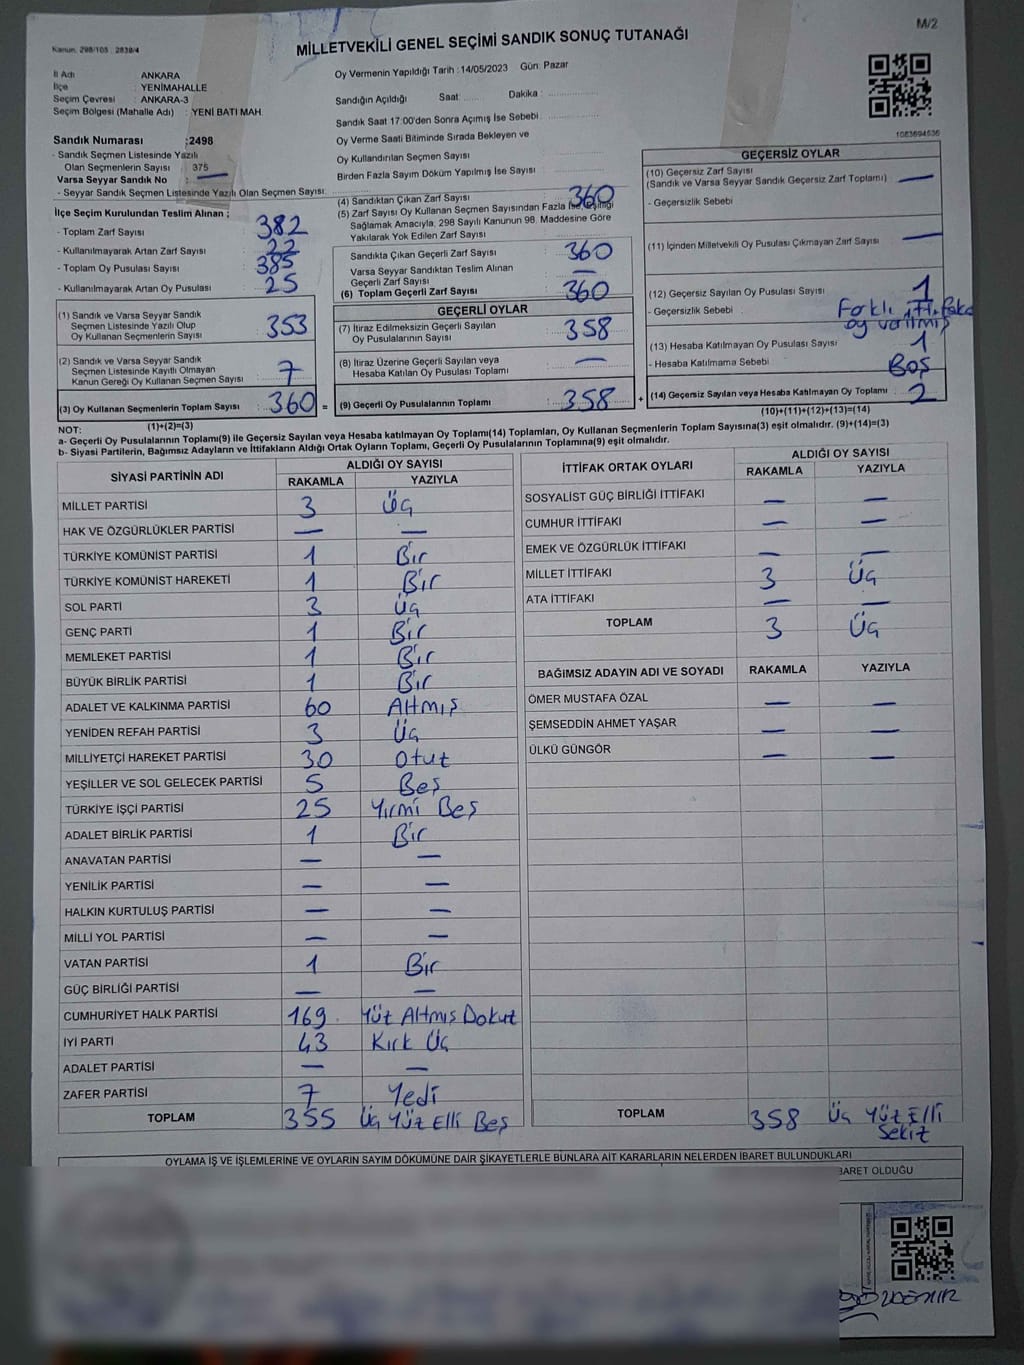 M/2
Kanun, 298/105 : 2839/4
MİLLETVEKİLİ GENEL SEÇİMİ SANDIK SONUÇ TUTANAĞI
İl Adı : ANKARA
İlçe : YENİMAHALLE
Seçim Çevresi : ANKARA-3
Seçim Bölgesi (Mahalle Adı) : YENİ BATI MAH.
Sandık Numarası : 2498
- Sandık Seçmen Listesinde Yazılı
Olan Seçmenlerin Sayısı : 375
Varsa Seyyar Sandık No : —
- Seyyar Sandık Seçmen Listesinde Yazılı Olan Seçmen Sayısı:
İlçe Seçim Kurulundan Teslim Alınan ;
- Toplam Zarf Sayısı : 382
- Kullanılmayarak Artan Zarf Sayısı : 22
- Toplam Oy Pusulası Sayısı : 385
- Kullanılmayarak Artan Oy Pusulası : 25
(1) Sandık ve Varsa Seyyar Sandık
Seçmen Listesinde Yazılı Olup
Oy Kullanan Seçmenlerin Sayısı : 353
(2) Sandık ve Varsa Seyyar Sandık
Seçmen Listesinde Kayıtlı Olmayan
Kanun Gereği Oy Kullanan Seçmen Sayısı : 7
(3) Oy Kullanan Seçmenlerin Toplam Sayısı : 360 =
(1)+(2)=(3)
Oy Vermenin Yapıldığı Tarih : 14/05/2023 Gün: Pazar
Sandığın Açıldığı Saat: Dakika :
Sandık Saat 17:00'den Sonra Açımış İse Sebebi
Oy Verme Saati Bitiminde Sırada Bekleyen ve
Oy Kullandırılan Seçmen Sayısı
Birden Fazla Sayım Döküm Yapılmış İse Sayısı
(4) Sandıktan Çıkan Zarf Sayısı : 360
(5) Zarf Sayısı Oy Kullanan Seçmen Sayısından Fazla İse, Eşitliği
Sağlamak Amacıyla, 298 Sayılı Kanunun 98. Maddesine Göre
Yakılarak Yok Edilen Zarf Sayısı
Sandıkta Çıkan Geçerli Zarf Sayısı : 360
Varsa Seyyar Sandıktan Teslim Alınan
Geçerli Zarf Sayısı : —
(6) Toplam Geçerli Zarf Sayısı : 360
GEÇERLİ OYLAR
(7) İtiraz Edilmeksizin Geçerli Sayılan
Oy Pusulalarının Sayısı : 358
(8) İtiraz Üzerine Geçerli Sayılan veya
Hesaba Katılan Oy Pusulası Toplamı : —
(9) Geçerli Oy Pusulalarının Toplamı : 358 +
1083694536
GEÇERSİZ OYLAR
(10) Geçersiz Zarf Sayısı
(Sandık ve Varsa Seyyar Sandık Geçersiz Zarf Toplamı) : —
- Geçersizlik Sebebi
(11) İçinden Milletvekili Oy Pusulası Çıkmayan Zarf Sayısı : —
(12) Geçersiz Sayılan Oy Pusulası Sayısı : 1
- Geçersizlik Sebebi : Farklı
oy verilmiş
(13) Hesaba Katılmayan Oy Pusulası Sayısı : 1
- Hesaba Katılmama Sebebi : Boş
(14) Geçersiz Sayılan veya Hesaba Katılmayan Oy Toplamı : 2
(10)+(11)+(12)+(13)=(14)
NOT:
a- Geçerli Oy Pusulalarının Toplamı(9) ile Geçersiz Sayılan veya Hesaba katılmayan Oy Toplamı(14) Toplamları, Oy Kullanan Seçmenlerin Toplam Sayısına(3) eşit olmalıdır. (9)+(14)=(3)
b- Siyasi Partilerin, Bağımsız Adayların ve İttifakların Aldığı Oyların Toplamı, Geçerli Oy Pusulalarının Toplamına(9) eşit olmalıdır.
SİYASİ PARTİNİN ADI ALDIĞI OY SAYISI
RAKAMLA YAZIYLA
MİLLET PARTİSİ 3 Üç
HAK VE ÖZGÜRLÜKLER PARTİSİ — —
TÜRKİYE KOMÜNİST PARTİSİ 1 Bir
TÜRKİYE KOMÜNİST HAREKETİ 1 Bir
SOL PARTİ 3 Üç
GENÇ PARTİ 1 Bir
MEMLEKET PARTİSİ 1 Bir
BÜYÜK BİRLİK PARTİSİ 1 Bir
ADALET VE KALKINMA PARTİSİ 60 Altmış
YENİDEN REFAH PARTİSİ 3 Üç
MİLLİYETÇİ HAREKET PARTİSİ 30 Otuz
YEŞİLLER VE SOL GELECEK PARTİSİ 5 Beş
TÜRKİYE İŞÇİ PARTİSİ 25 Yirmi Beş
ADALET BİRLİK PARTİSİ 1 Bir
ANAVATAN PARTİSİ — —
YENİLİK PARTİSİ — —
HALKIN KURTULUŞ PARTİSİ — —
MİLLİ YOL PARTİSİ — —
VATAN PARTİSİ 1 Bir
GÜÇ BİRLİĞİ PARTİSİ — —
CUMHURİYET HALK PARTİSİ 169 Yüz Altmış Dokuz
İYİ PARTİ 43 Kırk Üç
ADALET PARTİSİ — —
ZAFER PARTİSİ 7 Yedi
TOPLAM 355 Üç Yüz Elli Beş
İTTİFAK ORTAK OYLARI ALDIĞI OY SAYISI
RAKAMLA YAZIYLA
SOSYALİST GÜÇ BİRLİĞİ İTTİFAKI — —
CUMHUR İTTİFAKI — —
EMEK VE ÖZGÜRLÜK İTTİFAKI — —
MİLLET İTTİFAKI 3 Üç
ATA İTTİFAKI — —
TOPLAM 3 Üç
BAĞIMSIZ ADAYIN ADI VE SOYADI RAKAMLA YAZIYLA
ÖMER MUSTAFA ÖZAL — —
ŞEMSEDDİN AHMET YAŞAR — —
ÜLKÜ GÜNGÖR — —
TOPLAM 358 Üç Yüz Elli
Sekiz
OYLAMA İŞ VE İŞLEMLERİNE VE OYLARIN SAYIM DÖKÜMÜNE DAİR ŞİKAYETLERLE BUNLARA AİT KARARLARIN NELERDEN İBARET BULUNDUKLARI
BARET OLDUĞU